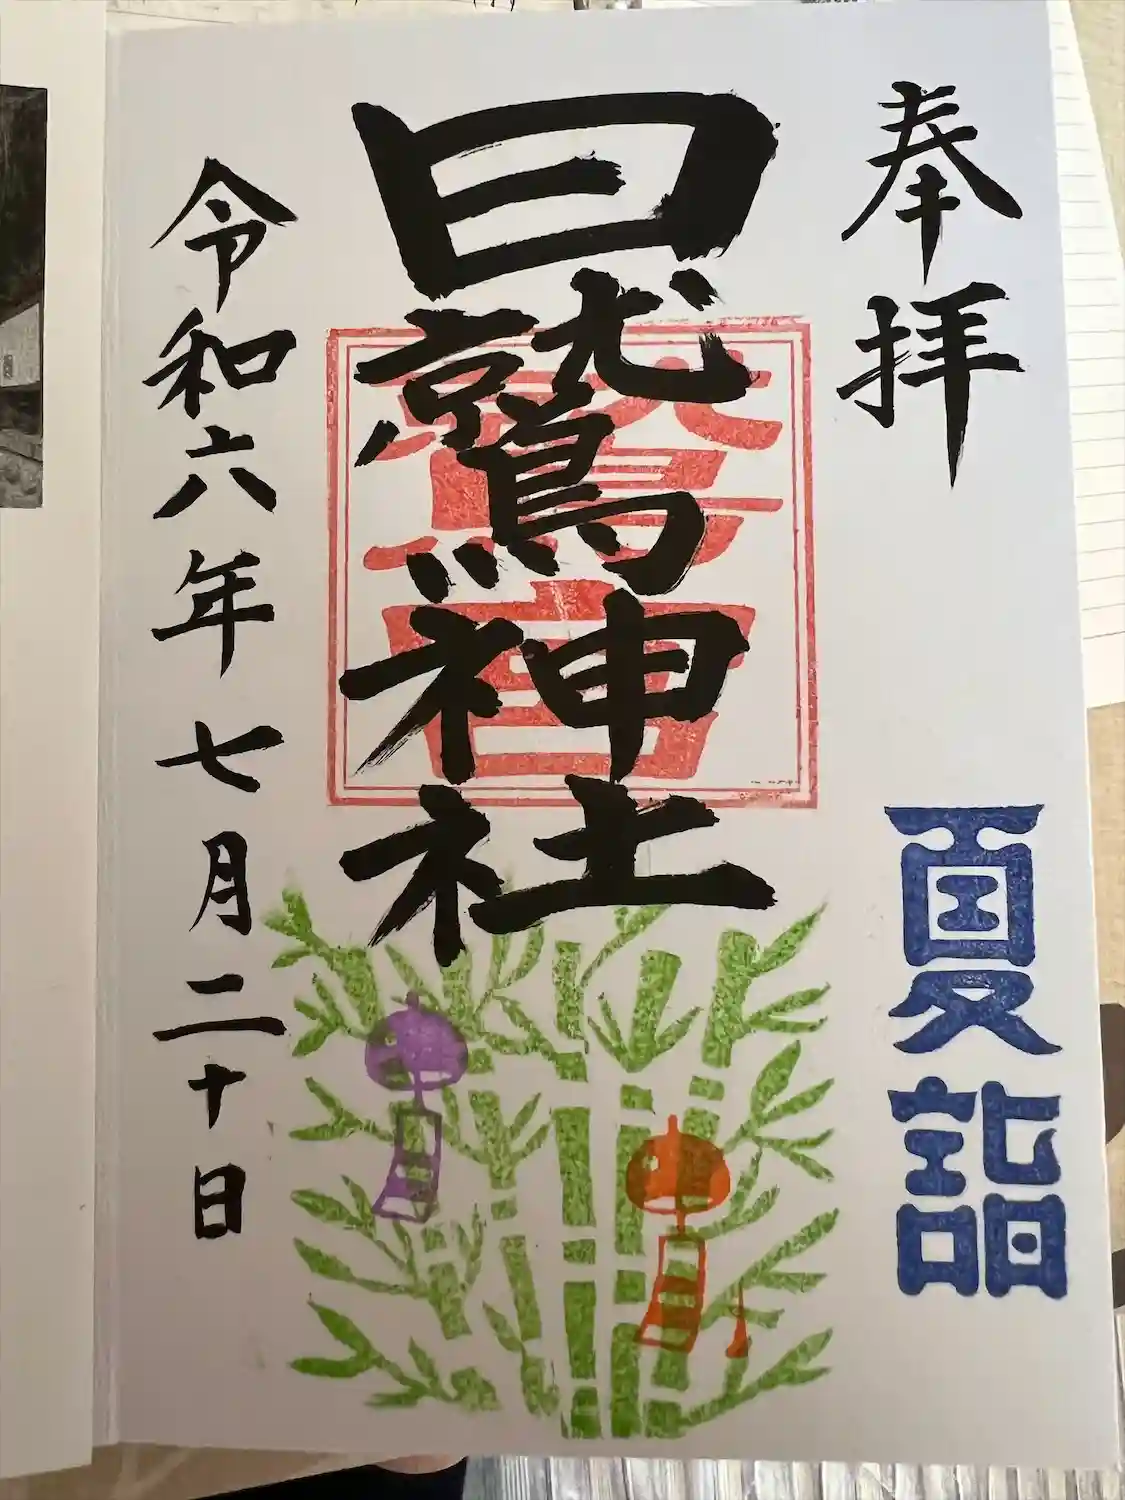 奉拝
夏詣
日鷲神社
令和六年七月二十日